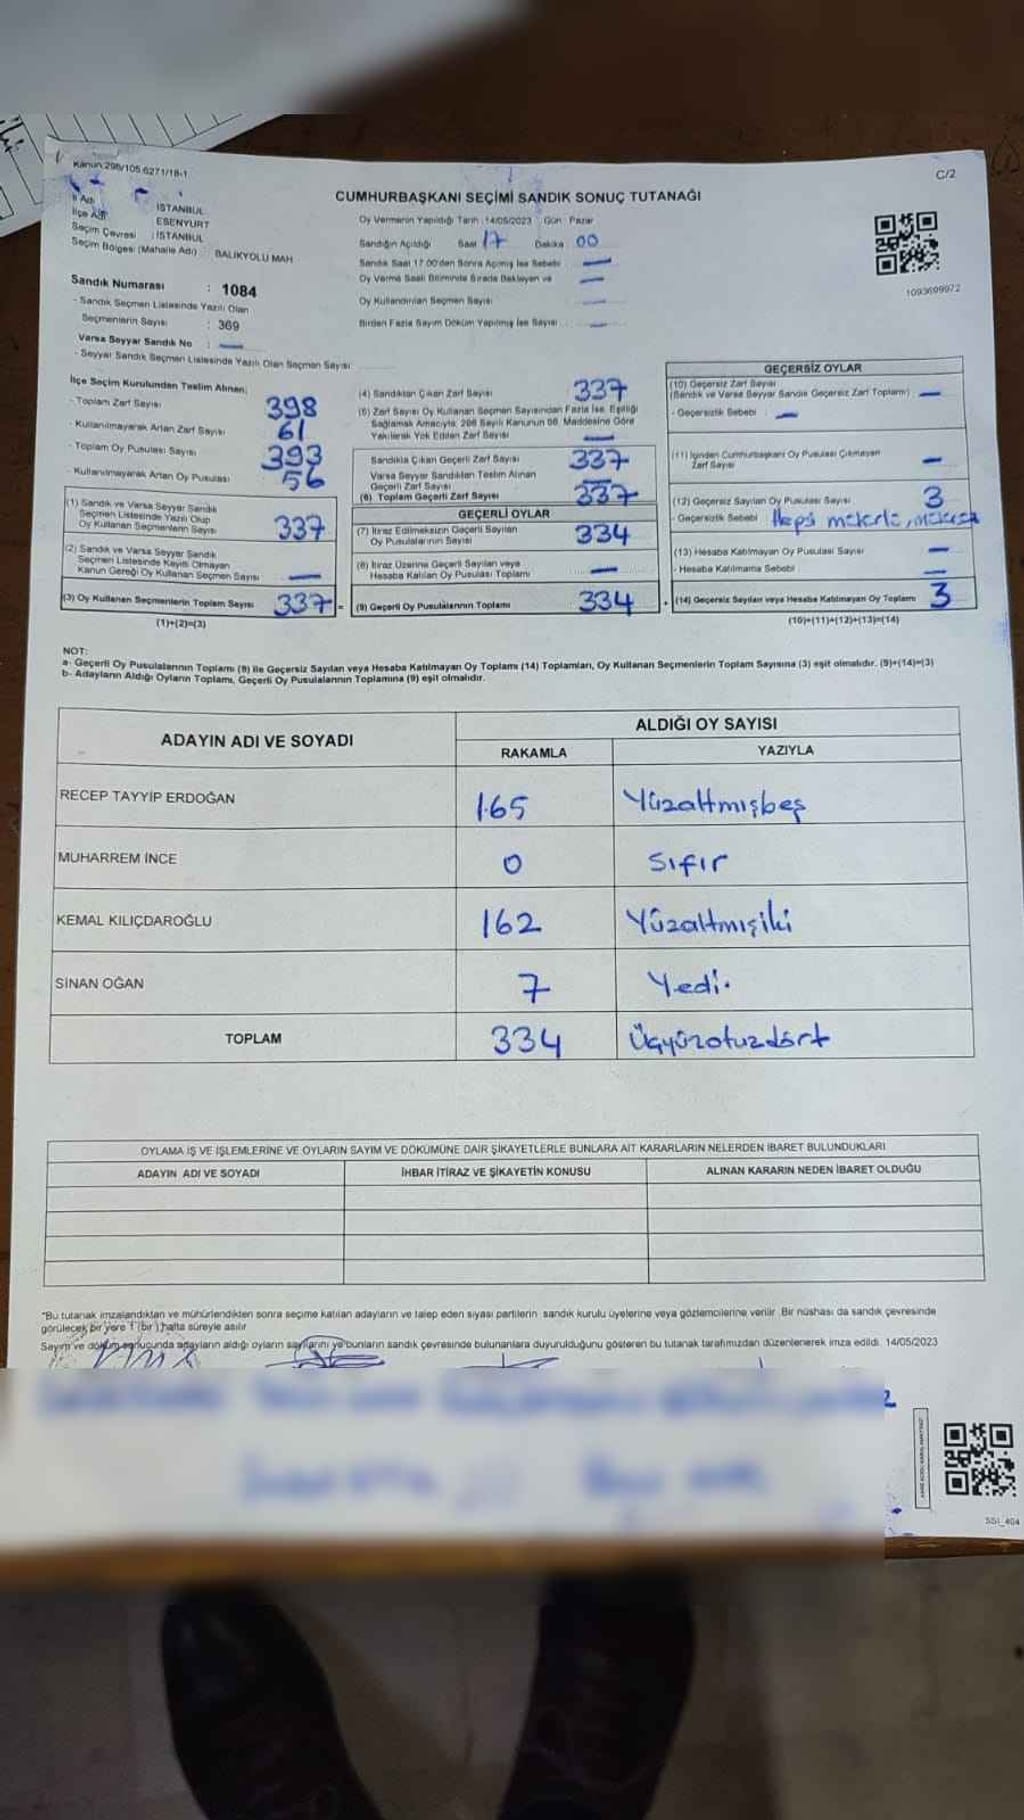 Kanun:298/105,6271/18-1
C/2
CUMHURBAŞKANI SEÇİMİ SANDIK SONUÇ TUTANAĞI
İl Adı : İSTANBUL
İlçe Adı : ESENYURT
Seçim Çevresi : İSTANBUL
Seçim Bölgesi (Mahalle Adı) : BALIKYOLU MAH
Oy Vermenin Yapıldığı Tarih :14/05/2023 Gün : Pazar
Sandığın Açıldığı Saat 17 Dakika 00
Sandık Saat 17.00'den Sonra Açılmış İse Sebebi —
Oy Verme Saati Bitiminde Sırada Bekleyen ve —
Oy Kullandırılan Seçmen Sayısı —
Birden Fazla Sayım Döküm Yapılmış İse Sayısı : —
1093699972
Sandık Numarası : 1084
- Sandık Seçmen Listesinde Yazılı Olan
Seçmenlerin Sayısı : 369
Varsa Seyyar Sandık No : —
- Seyyar Sandık Seçmen Listesinde Yazılı Olan Seçmen Sayısı:
İlçe Seçim Kurulundan Teslim Alınan;
- Toplam Zarf Sayısı 398
- Kullanılmayarak Artan Zarf Sayısı 61
- Toplam Oy Pusulası Sayısı 393
- Kullanılmayarak Artan Oy Pusulası 56
(1) Sandık ve Varsa Seyyar Sandık
Seçmen Listesinde Yazılı Olup
Oy Kullanan Seçmenlerin Sayısı 337
(2) Sandık ve Varsa Seyyar Sandık
Seçmen Listesinde Kayıtlı Olmayan
Kanun Gereği Oy Kullanan Seçmen Sayısı —
(3) Oy Kullanan Seçmenlerin Toplam Sayısı 337 =
(1)+(2)=(3)
(4) Sandıktan Çıkan Zarf Sayısı 337
(5) Zarf Sayısı Oy Kullanan Seçmen Sayısından Fazla İse, Eşitliği
Sağlamak Amacıyla; 298 Sayılı Kanunun 98. Maddesine Göre
Yakılarak Yok Edilen Zarf Sayısı —
Sandıkta Çıkan Geçerli Zarf Sayısı 337
Varsa Seyyar Sandıktan Teslim Alınan
Geçerli Zarf Sayısı —
(6) Toplam Geçerli Zarf Sayısı 337
GEÇERLİ OYLAR
(7) İtiraz Edilmeksizin Geçerli Sayılan
Oy Pusulalarının Sayısı 334
(8) İtiraz Üzerine Geçerli Sayılan veya
Hesaba Katılan Oy Pusulası Toplamı —
(9) Geçerli Oy Pusulalarının Toplamı 334 +
GEÇERSİZ OYLAR
(10) Geçersiz Zarf Sayısı
(Sandık ve Varsa Seyyar Sandık Geçersiz Zarf Toplamı) —
- Geçersizlik Sebebi : —
(11) İçinden Cumhurbaşkanı Oy Pusulası Çıkmayan
Zarf Sayısı —
(12) Geçersiz Sayılan Oy Pusulası Sayısı 3
- Geçersizlik Sebebi Hepsi
(13) Hesaba Katılmayan Oy Pusulası Sayısı —
- Hesaba Katılmama Sebebi —
(14) Geçersiz Sayılan veya Hesaba Katılmayan Oy Toplamı 3
(10)+(11)+(12)+(13)=(14)
NOT:
a- Geçerli Oy Pusulalarının Toplamı (9) ile Geçersiz Sayılan veya Hesaba Katılmayan Oy Toplamı (14) Toplamları, Oy Kullanan Seçmenlerin Toplam Sayısına (3) eşit olmalıdır. (9)+(14)=(3)
b- Adayların Aldığı Oyların Toplamı, Geçerli Oy Pusulalarının Toplamına (9) eşit olmalıdır.
ADAYIN ADI VE SOYADI
ALDIĞI OY SAYISI
RAKAMLA YAZIYLA
RECEP TAYYİP ERDOĞAN 165 Yüzaltmışbeş
MUHARREM İNCE 0 Sıfır
KEMAL KILIÇDAROĞLU 162 Yüzaltmışiki
SİNAN OĞAN 7 Yedi.
TOPLAM 334 Üçyüzotuzdört
OYLAMA İŞ VE İŞLEMLERİNE VE OYLARIN SAYIM VE DÖKÜMÜNE DAİR ŞİKAYETLERLE BUNLARA AİT KARARLARIN NELERDEN İBARET BULUNDUKLARI
ADAYIN ADI VE SOYADI İHBAR İTİRAZ VE ŞİKAYETİN KONUSU ALINAN KARARIN NEDEN İBARET OLDUĞU
*Bu tutanak imzalandıktan ve mühürlendikten sonra seçime katılan adayların ve talep eden siyasi partilerin sandık kurulu üyelerine veya gözlemcilerine verilir. Bir nüshası da sandık çevresinde
görülecek bir yere 1 (bir) hafta süreyle asılır
Sayım ve döküm sonucunda adayların aldığı oyların sayılarını ve bunların sandık çevresinde bulunanlara duyurulduğunu gösteren bu tutanak tarafımızdan düzenlenerek imza edildi. 14/05/2023
SSI_404